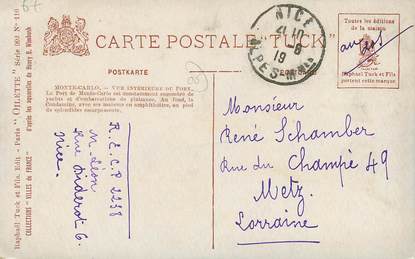 67
CARTE POSTALE "TUCK"
Toutes les éditions
de la maison
Raphael Tuck et Fils
portent cette marque.
POSTKARTE
NICE
19
ALPES-Mmes
MONTE-CARLO. — VUE INTÉRIEURE DU PORT.
Le Port de Monte-Carlo est constamment encombré de
yachts et d'embarcations de plaisance. Au fond, la
Condamine, avec ses maisons en amphithéâtre, au pied
de splendides escarpements.
Raphael Tuck et Fils, Edit. - Paris "OILETTE" Série
COLLECTIONS - VILLES de FRANCE
d'après des aquarelles de Henry B. Wimbush
R.E.C.P 2238
M. Léon
Rue Diderot 6.
Nice.
Monsieur
René Schamber
Rue du Champé 49
Metz
Lorraine